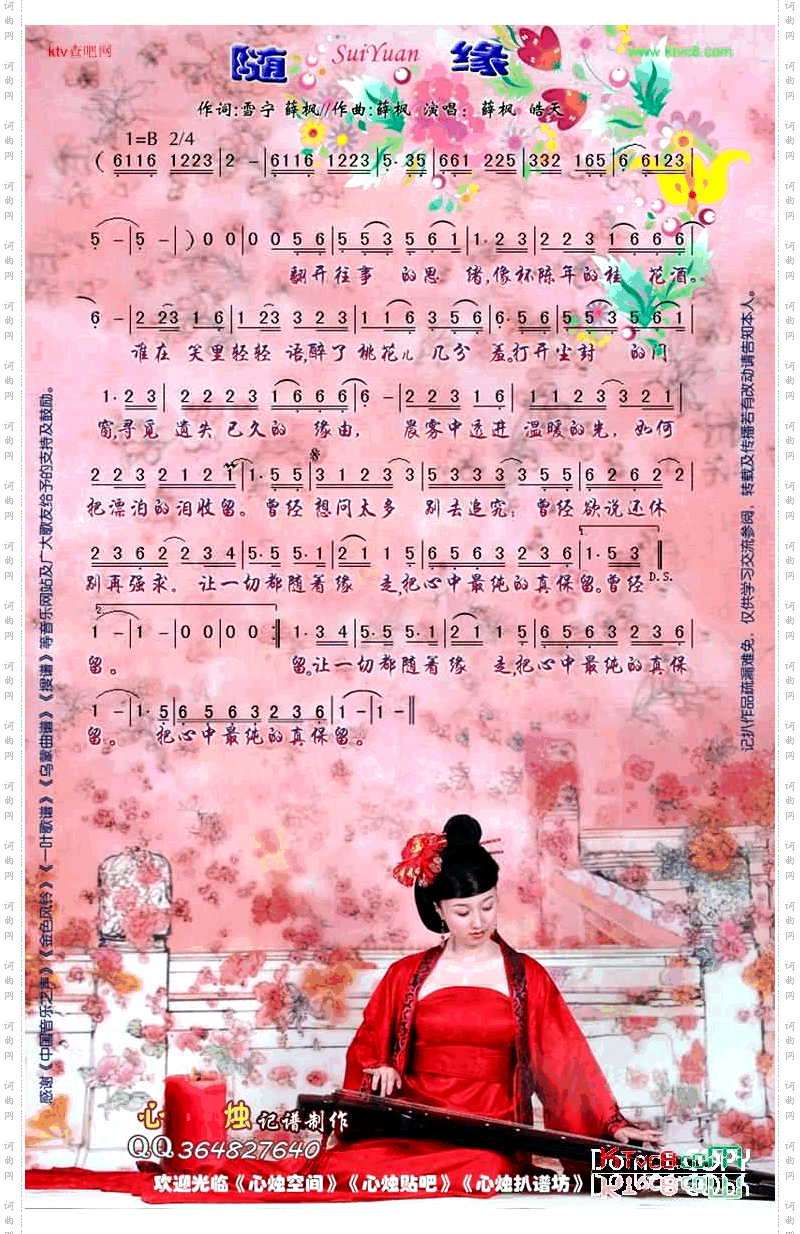 ktv查吧网
随 SuiYuan 缘
www.ktvc8.com
作词:雪宁 薛枫//作曲:薛枫 演唱: 薛枫 皓天
1=B 2/4
( 6116 1223 | 2 - | 6116 1223 | 5· 35 | 661 225 | 332 165 | 6 6123 |
5 - | 5 - | ) 0 0 | 0 0 5 6 | 5 5 3 5 6 1 | 1· 2 3 | 2 2 3 1 6 6 6 |
翻开往事 的思 绪,像杯陈年的桂 花酒。
6 - | 2 23 1 6 | 1 23 3 2 3 | 1 3 5 6 3 5 | 6· 5 6 | 5 5 3 5 6 1 |
谁在 笑里轻轻 语,醉了 桃花儿 几分 羞。打开尘封 的门
1· 2 3 | 2 2 2 3 1 6 6 6 | 6 - | 2 2 3 1 6 | 1 1 2 3 3 2 1 |
窗,寻觅 遗失 已久的 缘由, 晨雾中透进 温暖的光, 如何
2 2 3 2 1 2 1 | 1· 5 5 | 3 1 2 3 | 5 3 3 3 5 5 | 6 2 6 2 2 |
把漂泊的泪收留。曾经 想问太多 别去追究; 曾经欲说还休
2 3 6 2 2 3 4 | 5· 5 5· 1 | 2 1 1 5 | 6 5 6 3 2 3 6 | 1. 1· 5 3 ‖
别再强求。 让一切都随着缘 走,把心中最纯的真保留。曾经 D.S.
2. 1 - | 1 - | 0 0 | 0 0 :‖ 1· 3 4 | 5· 5 5· 1 | 2 1 1 5 | 6 5 6 3 2 3 6 |
留。 留。让一切都随着缘 走,把心中最纯的真保
1 - | 1· 5 | 6 5 6 3 2 3 6 | 1 - | 1 - ‖
留。 把心中最纯的真保留。
感谢《中国音乐之声》《金色风铃》《一叶歌谱》《乌蒙曲谱》《搜谱》等音乐网站及广大歌友给予的支持及鼓励。
记扒作品疏漏难免, 仅供学习交流参阅, 转载及传播若有改动请告知本人。
心 烛 记谱制作
QQ 364827640
欢迎光临《心烛空间》《心烛贴吧》《心烛扒谱坊》
词曲网